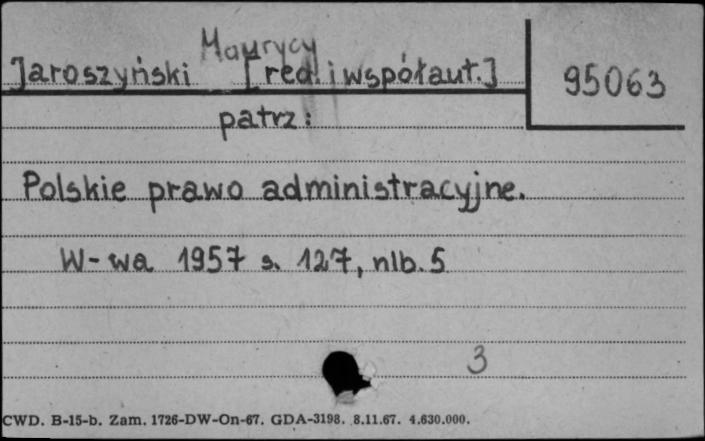 Maurycy
Jaroszyński [red. i współaut.] 95063
patrz:
Polskie prawo administracyjne.
W-wa 1957 s. 127, nlb. 5
3
CWD. B-15-b. Zam. 1726-DW-On-67. GDA-3198. 8.11.67. 4.630.000.